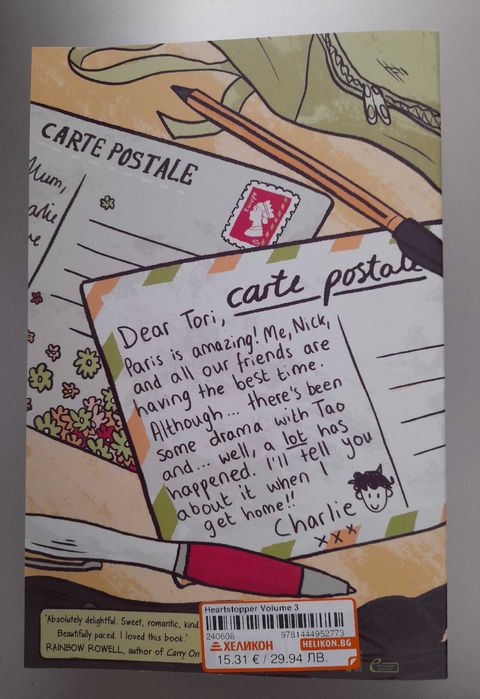 CARTE POSTALE
Mum,
Europe
carte postale
Dear Tori,
Paris is amazing! Me, Nick,
and all our friends are
having the best time.
Although... there's been
some drama with Tao
and... well, a lot has
happened. I'll tell you
about it when I
get home!!
Charlie
xxx
'Absolutely delightful. Sweet, romantic, kind.
Beautifully paced. I loved this book.'
RAINBOW ROWELL, author of Carry On
Heartstopper Volume 3
240608 9781444952773
ХЕЛИКОН HELIKON.BG
15.31 € / 29.94 ЛВ.